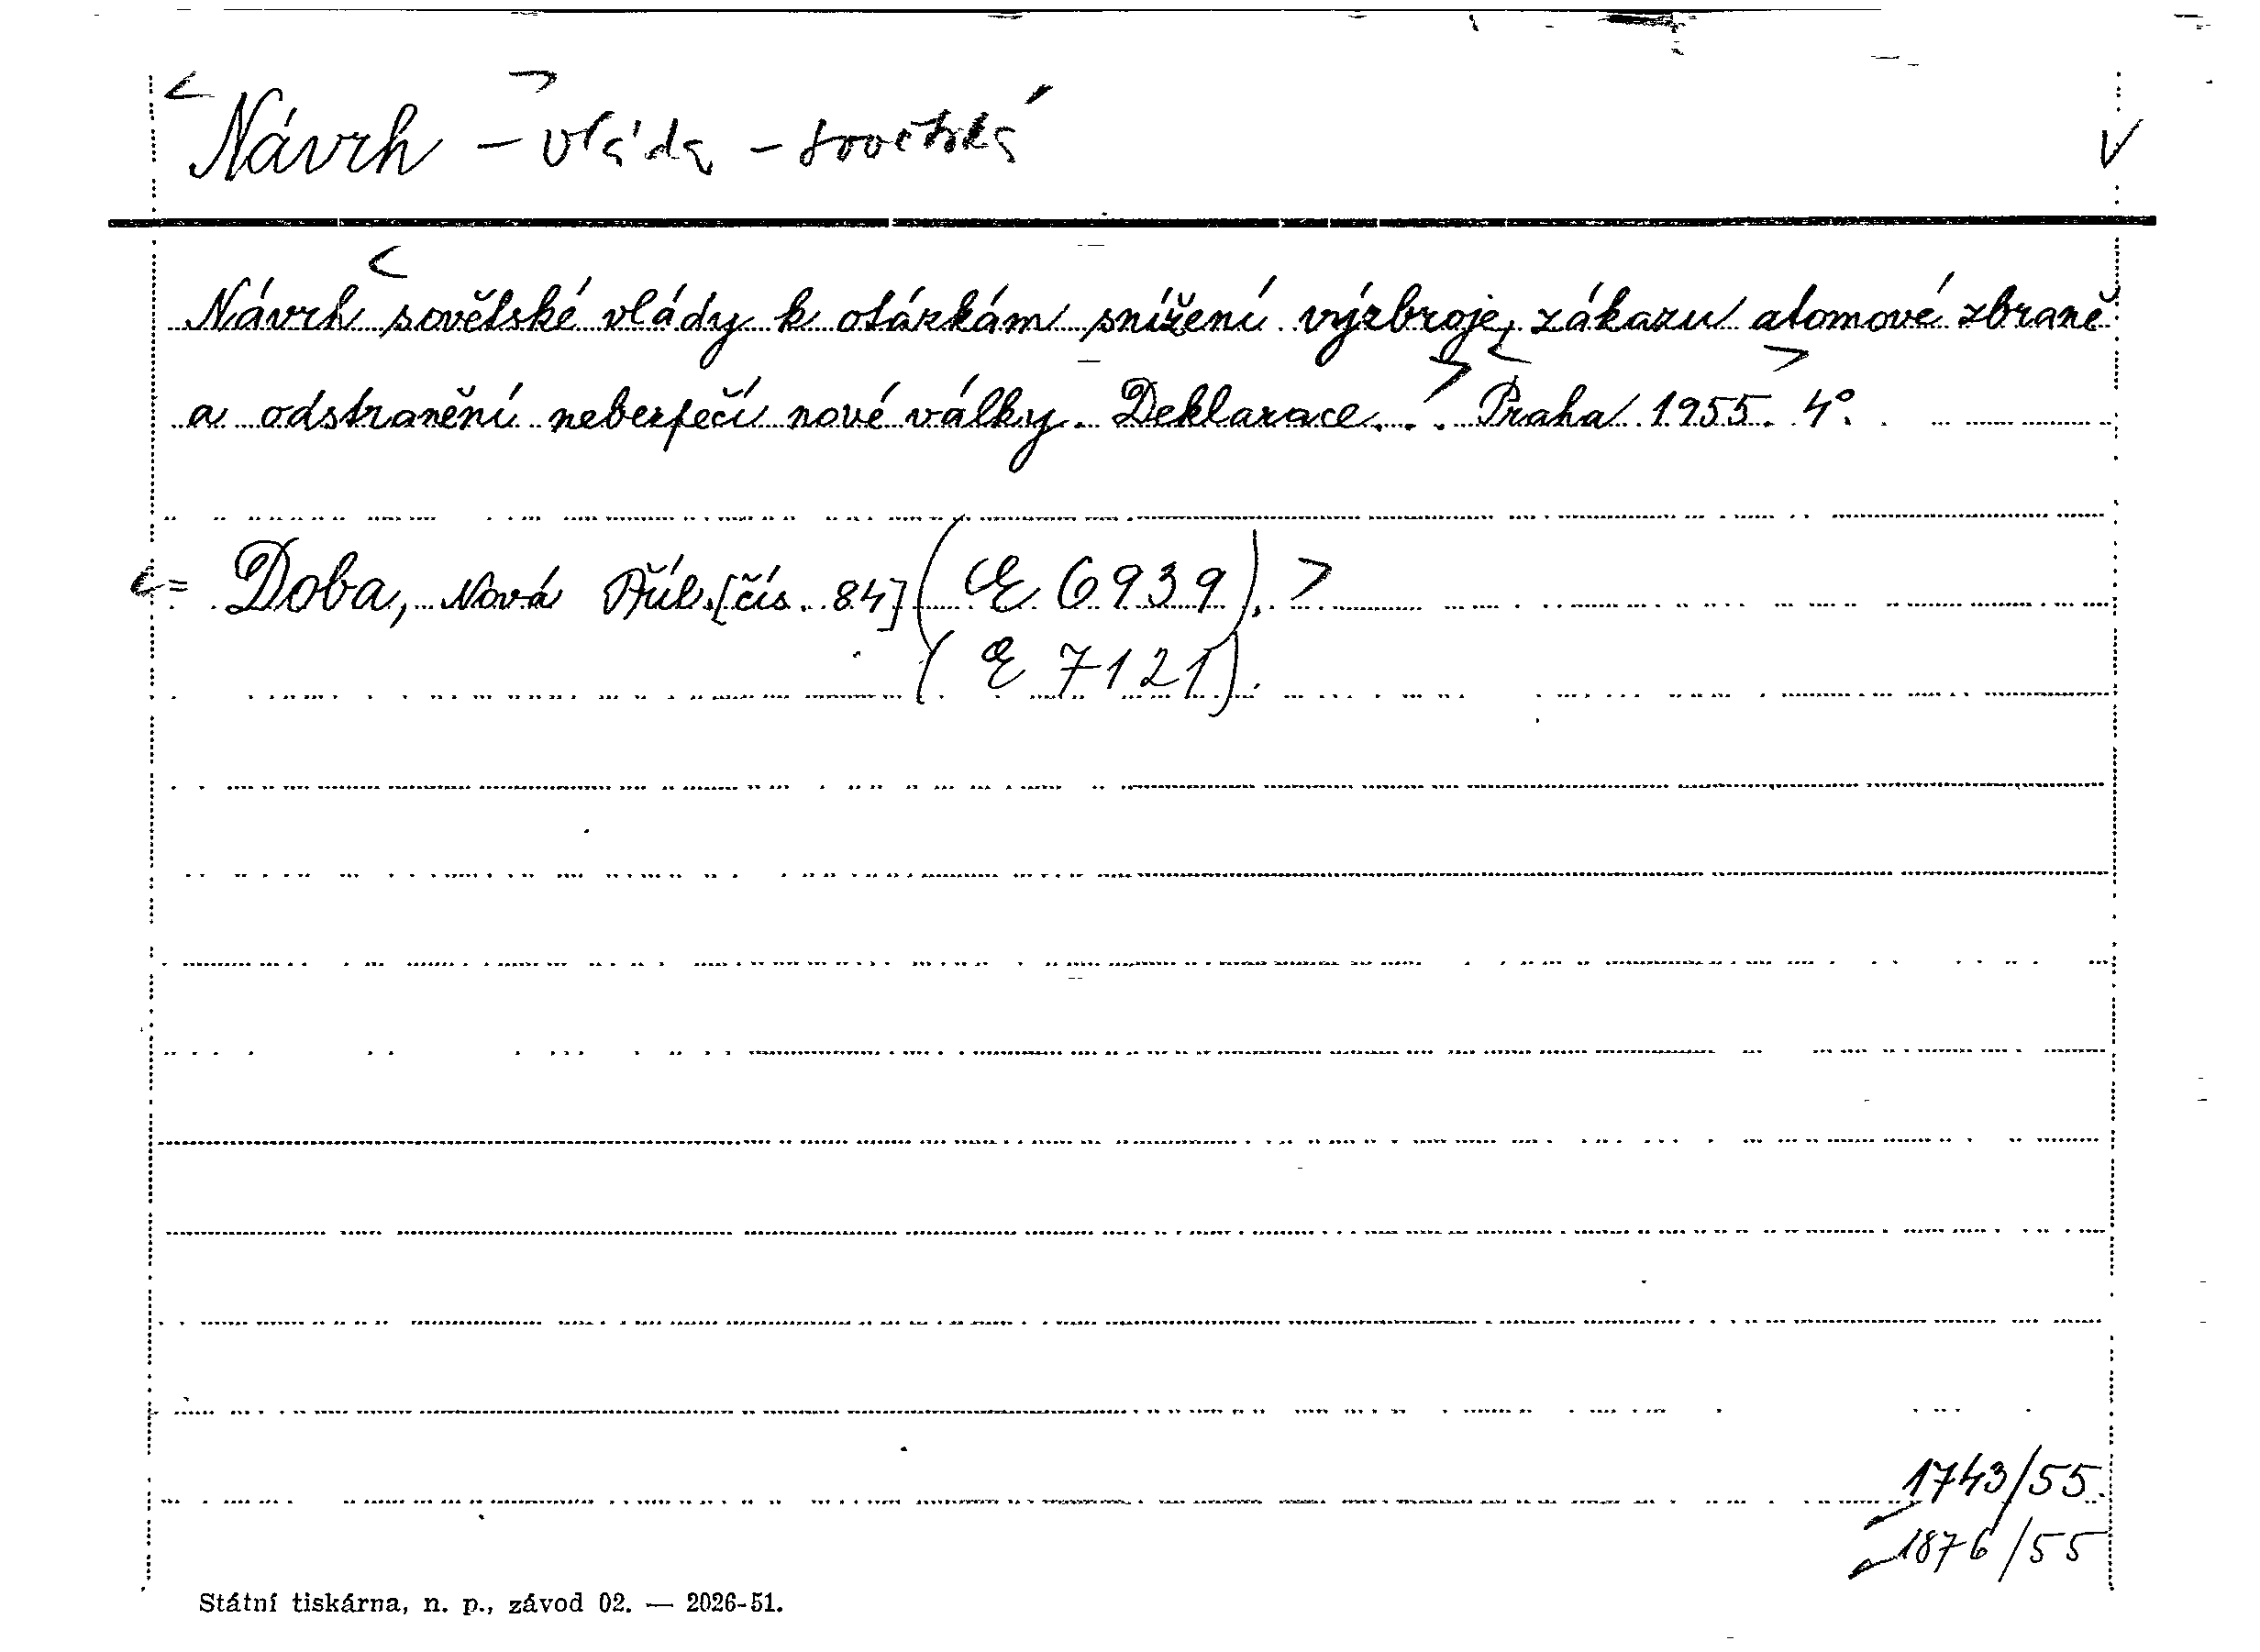 < Návrh > – vláda – sovětská
V
Návrh < sovětské vlády k otázkám snížení výzbroje, zákazu atomové zbraně
a odstranění nebezpečí nové války. Deklarace. . . > < Praha > 1955. 4°.
< = Doba, Nová Příl. [čís. 84] (E 6939). >
(E 7121).
1743/55.
1876/55
Státní tiskárna, n. p., závod 02. — 2026-51.